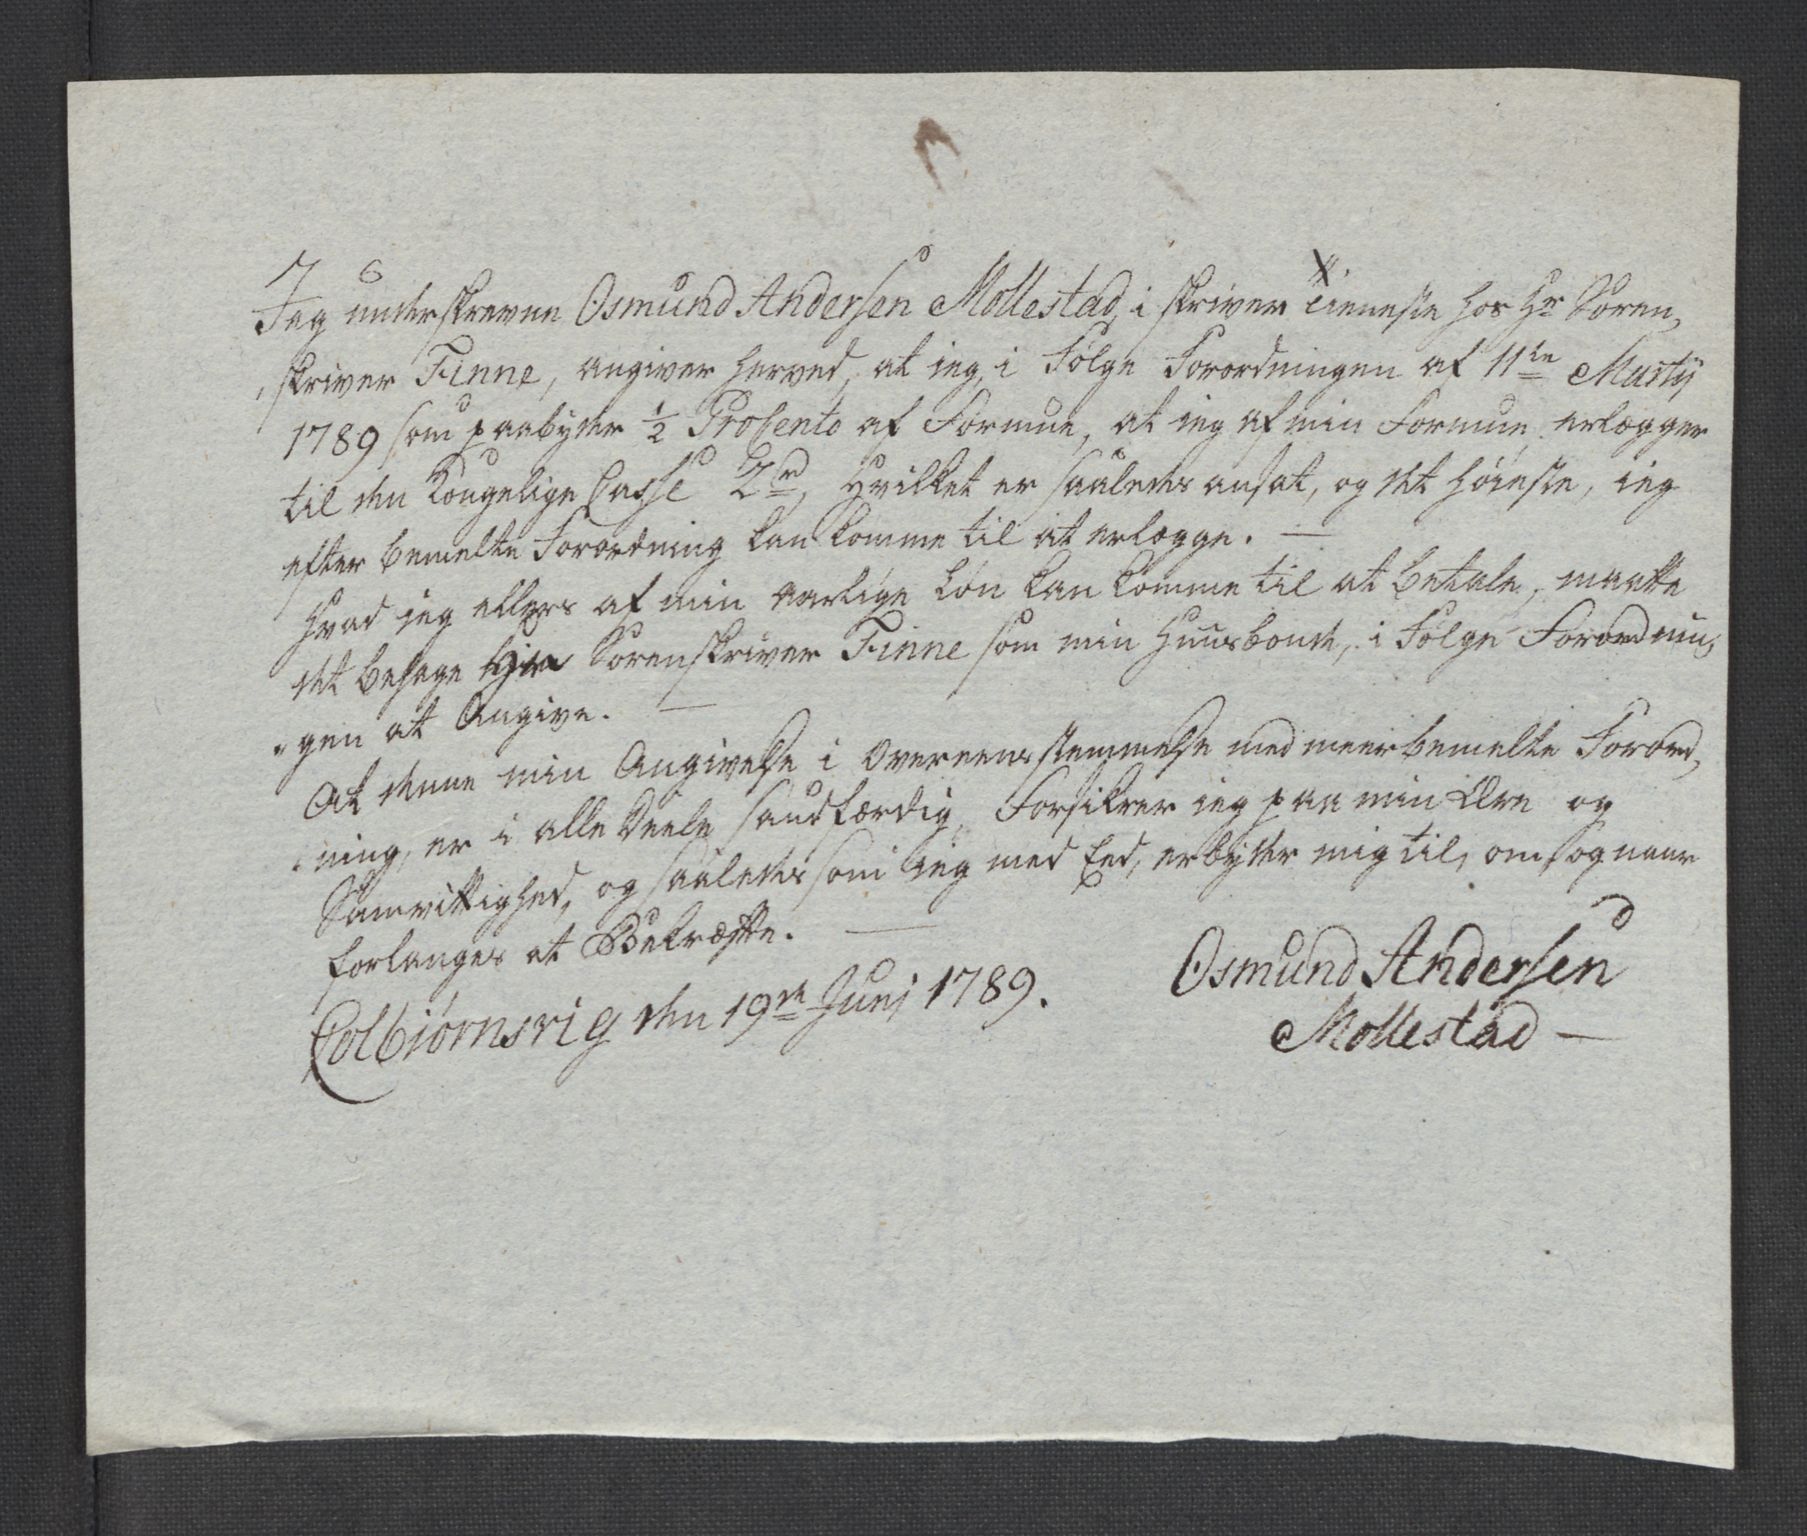 76
Jeg underskrevne Osmund Andersen Mollestad, i skriver Tieneste hos Hr Soren,
, skriver Finne, angiver herved, at ieg, i Følge Forordningen af 11te Martij
1789 som paabyder ½ ProCento af Formue, at ieg af min Formue erlægger
til den Kongelige Casse 2 rd, Hvilket er saaledes ansat, og det høieste, ieg
efter bemelte Forordning kan komme til at erlægge. —
Hvad ieg ellers af min aarlige Løn kan komme til at betale, maatte
det behage Hr Sorenskriver Finne som min Huusbonde, i Følge Forordnin,
„gen at Angive. —
At denne min Angivelse i Overeensstemmelse med meerbemelte Forord,
„ning, er i alle Deele sandfærdig, Forsikrer ieg paa min Ære og
Samvittighed, og saaledes som ieg med Eed, erbyder mig til, om og naar
forlanges at Bekræfte. —
Colbiørnsvig den 19de Junj 1789.
Osmund Andersen
Mollestad —